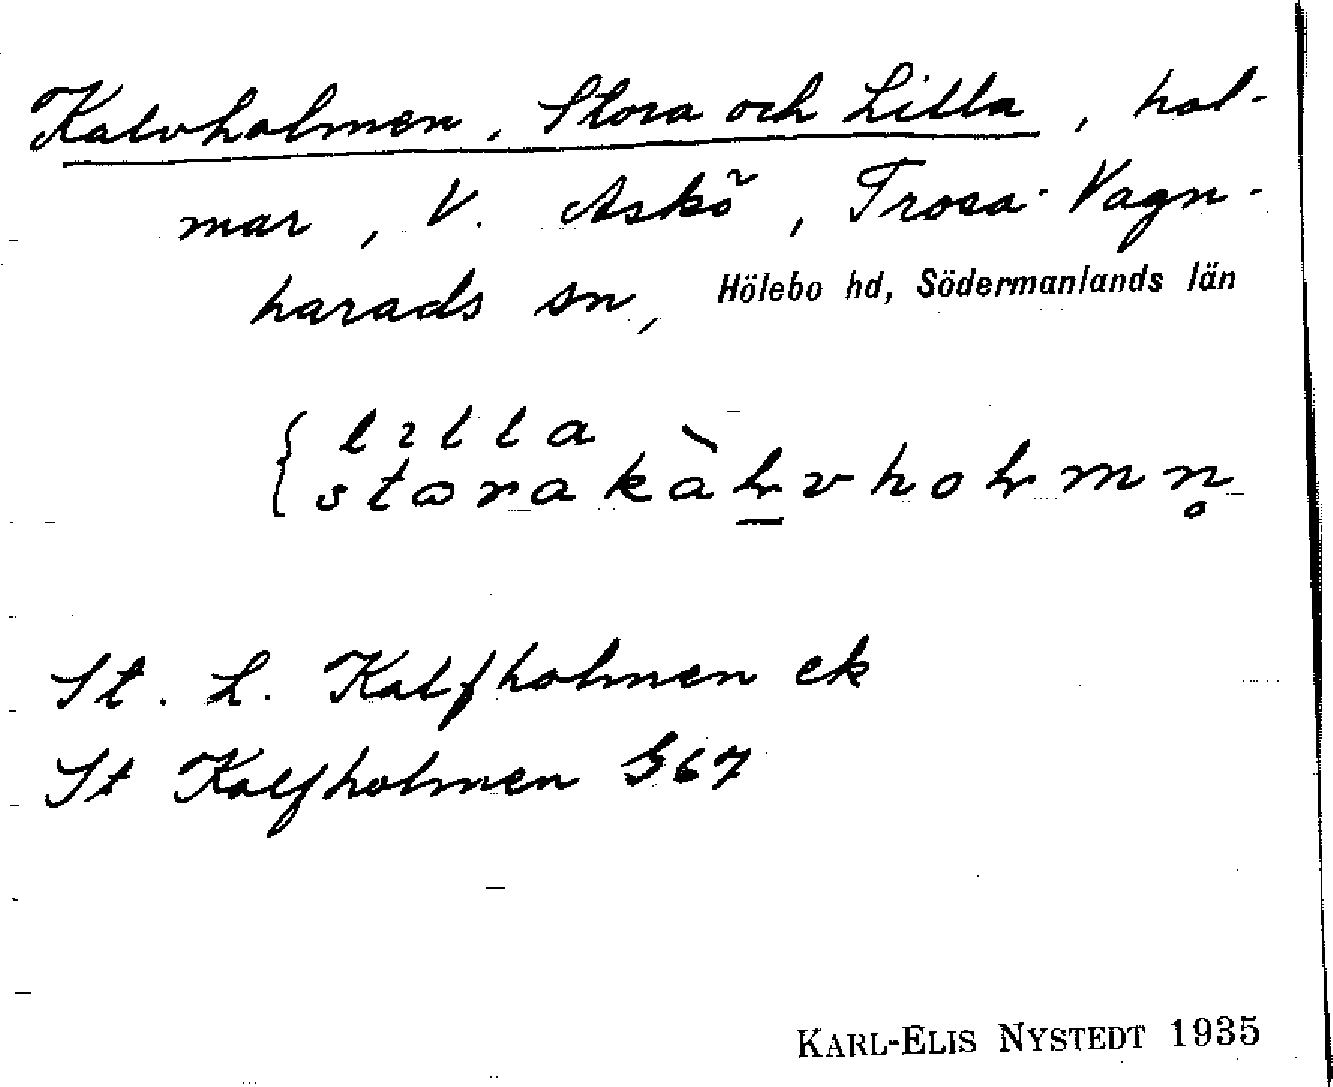 Kalvholmen, Stora och Lilla, hol-
mar, V. Askö, Trosa-Vagn-
harads sn, Hölebo hd, Södermanlands län
{ lılla
stora kàlvholmn̥
St. L. Kalfholmen ek
St Kalfholmen G67
KARL-ELIS NYSTEDT 1935